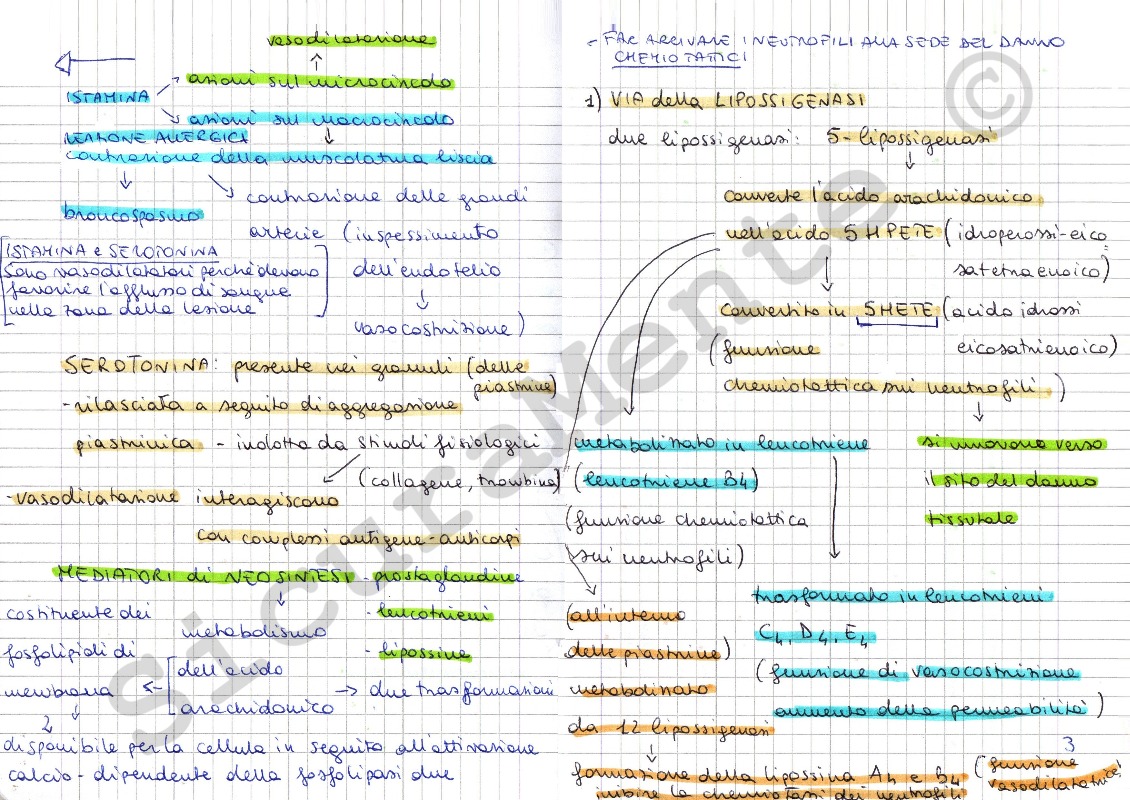 vasodilatazione
azioni sul microcircolo
ISTAMINA
azioni sul macrocircolo
REAZIONE ALLERGICA
contrazione della muscolatura liscia
contrazione delle grandi
broncospasmo
arterie (inspessimento
ISTAMINA e SEROTONINA
Sono vasodilatatori perché devono
favorire l'afflusso di sangue
nella zona della lesione
dell'endotelio
vasocostrizione)
SEROTONINA: presente nei granuli (delle
piastrine)
- rilasciata a seguito di aggregazione
piastrinica - indotta da stimoli fisiologici
(collagene, trombina)
- vasodilatazione interagiscono
con complessi antigene-anticorpi
MEDIATORI di NEOSINTESI - prostaglandine
costituente dei
- leucotrieni
metabolismo
fosfolipidi di
- lipossine
dell'acido
membrana
arachidonico
→ due trasformazioni
2
disponibile per la cellula in seguito all'attivazione
calcio-dipendente della fosfolipasi due
- FAR ARRIVARE I NEUTROFILI ALLA SEDE DEL DANNO
CHEMIOTATTICI
1) VIA della LIPOSSIGENASI
due lipossigenasi: 5-lipossigenasi
converte l'acido arachidonico
nell'acido 5HPETE (idroperossi-eico
satetraenoico)
convertito in 5HETE (acido idrossi
(funzione eicosatrienoico)
chemiotattica sui neutrofili)
metabolizzato in leucotriene
si muovono verso
(leucotriene B4)
il sito del danno
(funzione chemiotattica
tissutale
sui neutrofili)
trasformato in leucotrieni
(all'interno
C4, D4, E4
delle piastrine)
(funzione di vasocostrizione
metabolizzato
aumento della permeabilità)
da 12 lipossigenasi
3
formazione della lipossina A4 e B4 (funzione
vasodilatatrice)
inibire la chemiotassi dei neutrofili
SicuraMente ©